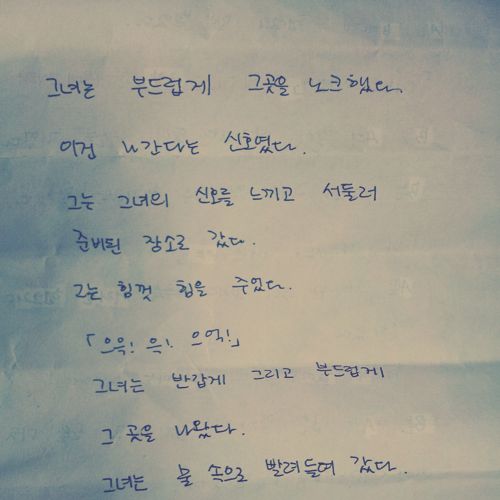 그녀는 부드럽게 그곳을 노크했다.
이건 나간다는 신호였다.
그는 그녀의 신호를 느끼고 서둘러
준비된 장소로 갔다.
그는 힘껏 힘을 주었다.
「으윽! 윽! 으억!」
그녀는 반갑게 그리고 부드럽게
그 곳을 나왔다.
그녀는 물 속으로 빨려들며 갔다.